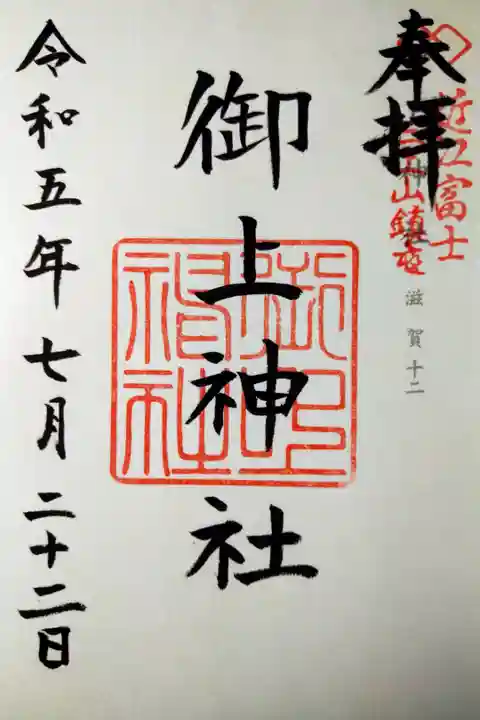 奉拝
近江富士
三上山鎮座
滋賀十二
御上神社
令和五年七月二十二日